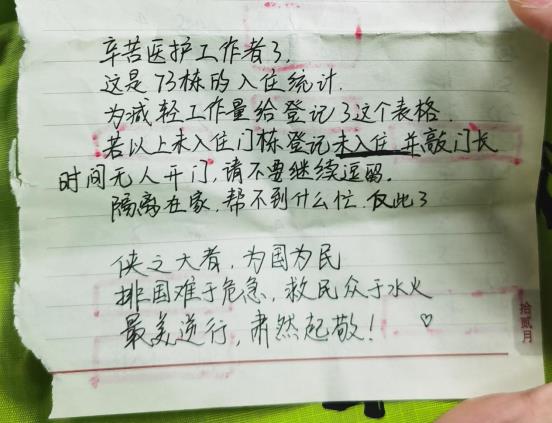 辛苦医护工作者了.
这是73栋的入住统计.
为减轻工作量给登记了这个表格.
若以上未入住门栋登记未入住,并敲门长
时间无人开门,请不要继续逗留.
隔离在家,帮不到什么忙.仅此了
侠之大者,为国为民
排国难于危急,救民众于水火
最美逆行,肃然起敬! ♡
拾贰月